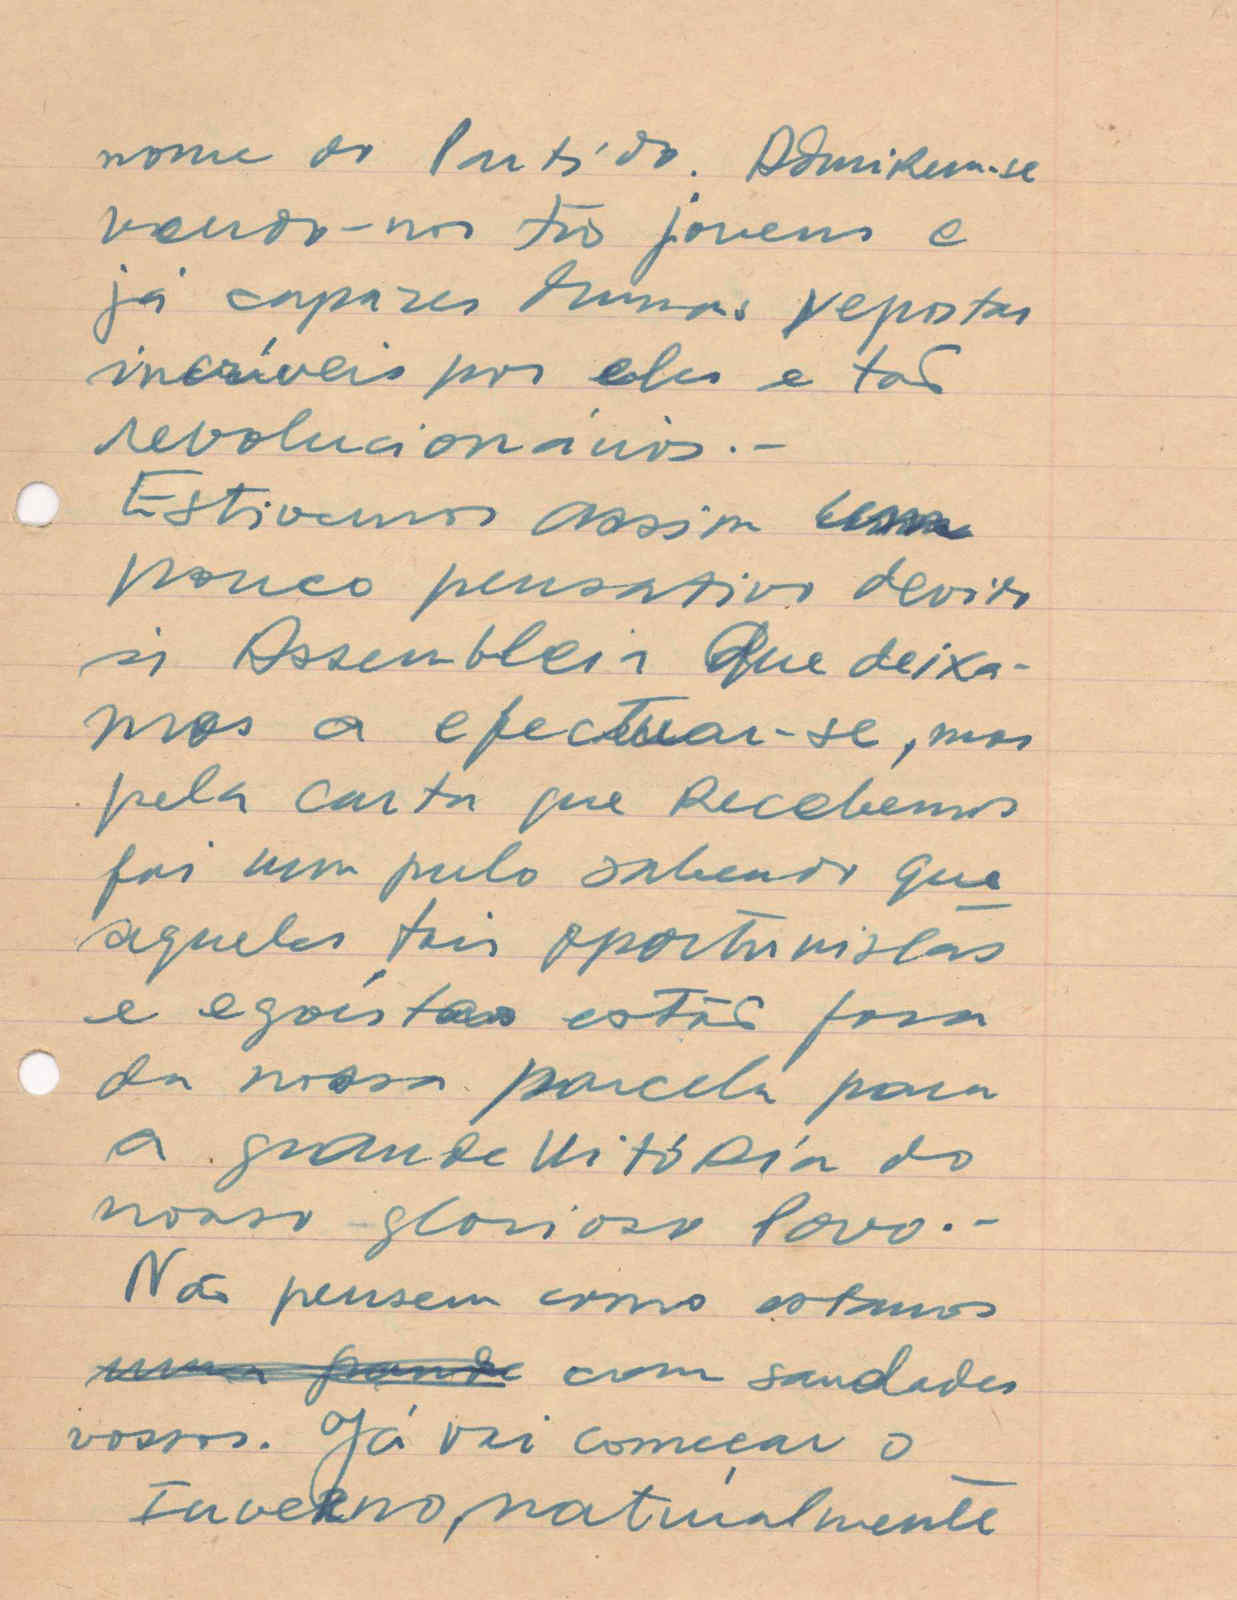 nome do Partido. Admirem-se
vendo-nos tão jovens e
já capazes dumas repostas
incríveis por eles e tão
revolucionários.-
Estivemos assim um
pouco pensativo devido
a Assembleia que deixa-
mos a efectuar-se, mas
pela carta que recebemos
foi um pulo sabendo que
aqueles tais oportunistas
e egoístas estão fora
da nossa parcela para
a grande Vitória do
nosso glorioso Povo.-
Não pensem como estamos
com saudades
vossos. Já vai começar o
Inverno, naturalmente